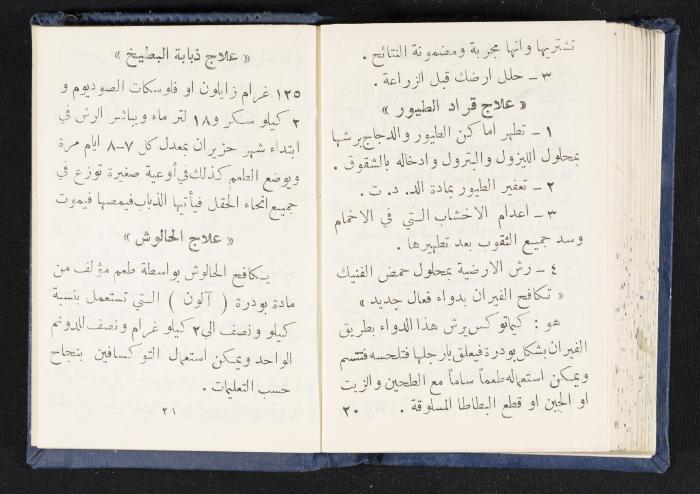 تشتريها وانها مجربة ومضمونة النتائج .
٣ ـ حلل ارضك قبل الزراعة .
« علاج قراد الطيور »
١ ـ تطهر اماكن الطيور والدجاج برشها
بمحلول الليزول والبترول وادخاله بالشقوق .
٢ ـ تعفير الطيور بمادة الد . د . ت .
٣ ـ اعدام الاخشاب التي في الاخمام
وسد جميع الثقوب بعد تطهيرها .
٤ ـ رش الارضية بمحلول حمض الفنيك
« تكافح الفيران بدواء فعال جديد »
هو : كيماتوكس يرش هذا الدواء بطريق
الفيران بشكل بودرة فيعلق بارجلها فتلحسه فتتسم
ويمكن استعماله طعماً ساماً مع الطحين والزيت
او الجبن او قطع البطاطا المسلوقة .
٢٠
« علاج ذبابة البطيخ »
١٢٥ غرام زايلون او فلوسكات الصوديوم و
٢ كيلو سكر و١٨ لتر ماء ويباشر الرش في
ابتداء شهر حزيران بمعدل كل ٧-٨ ايام مرة
ويوضع الطعم كذلك في أوعية صغيرة توزع في
جميع انحاء الحقل فيأتيها الذباب فيمصها فيموت
« علاج الحالوش »
يكافح الحالوش بواسطة طعم مؤلف من
مادة بودرة ( آلون ) التي تستعمل بنسبة
كيلو ونصف الى ٢ كيلو غرام ونصف للدونم
الواحد ويمكن استعمال التوكسافين بنجاح
حسب التعليمات .
٢١